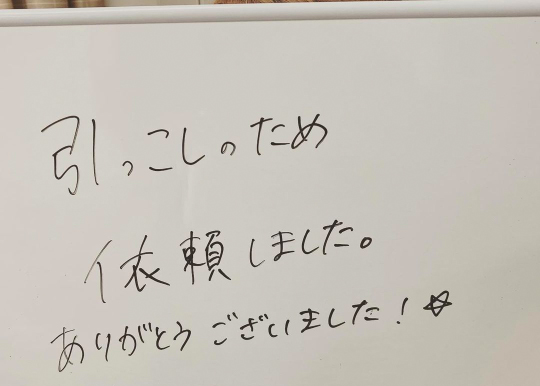 引っこしのため
依頼しました。
ありがとうございました！☆